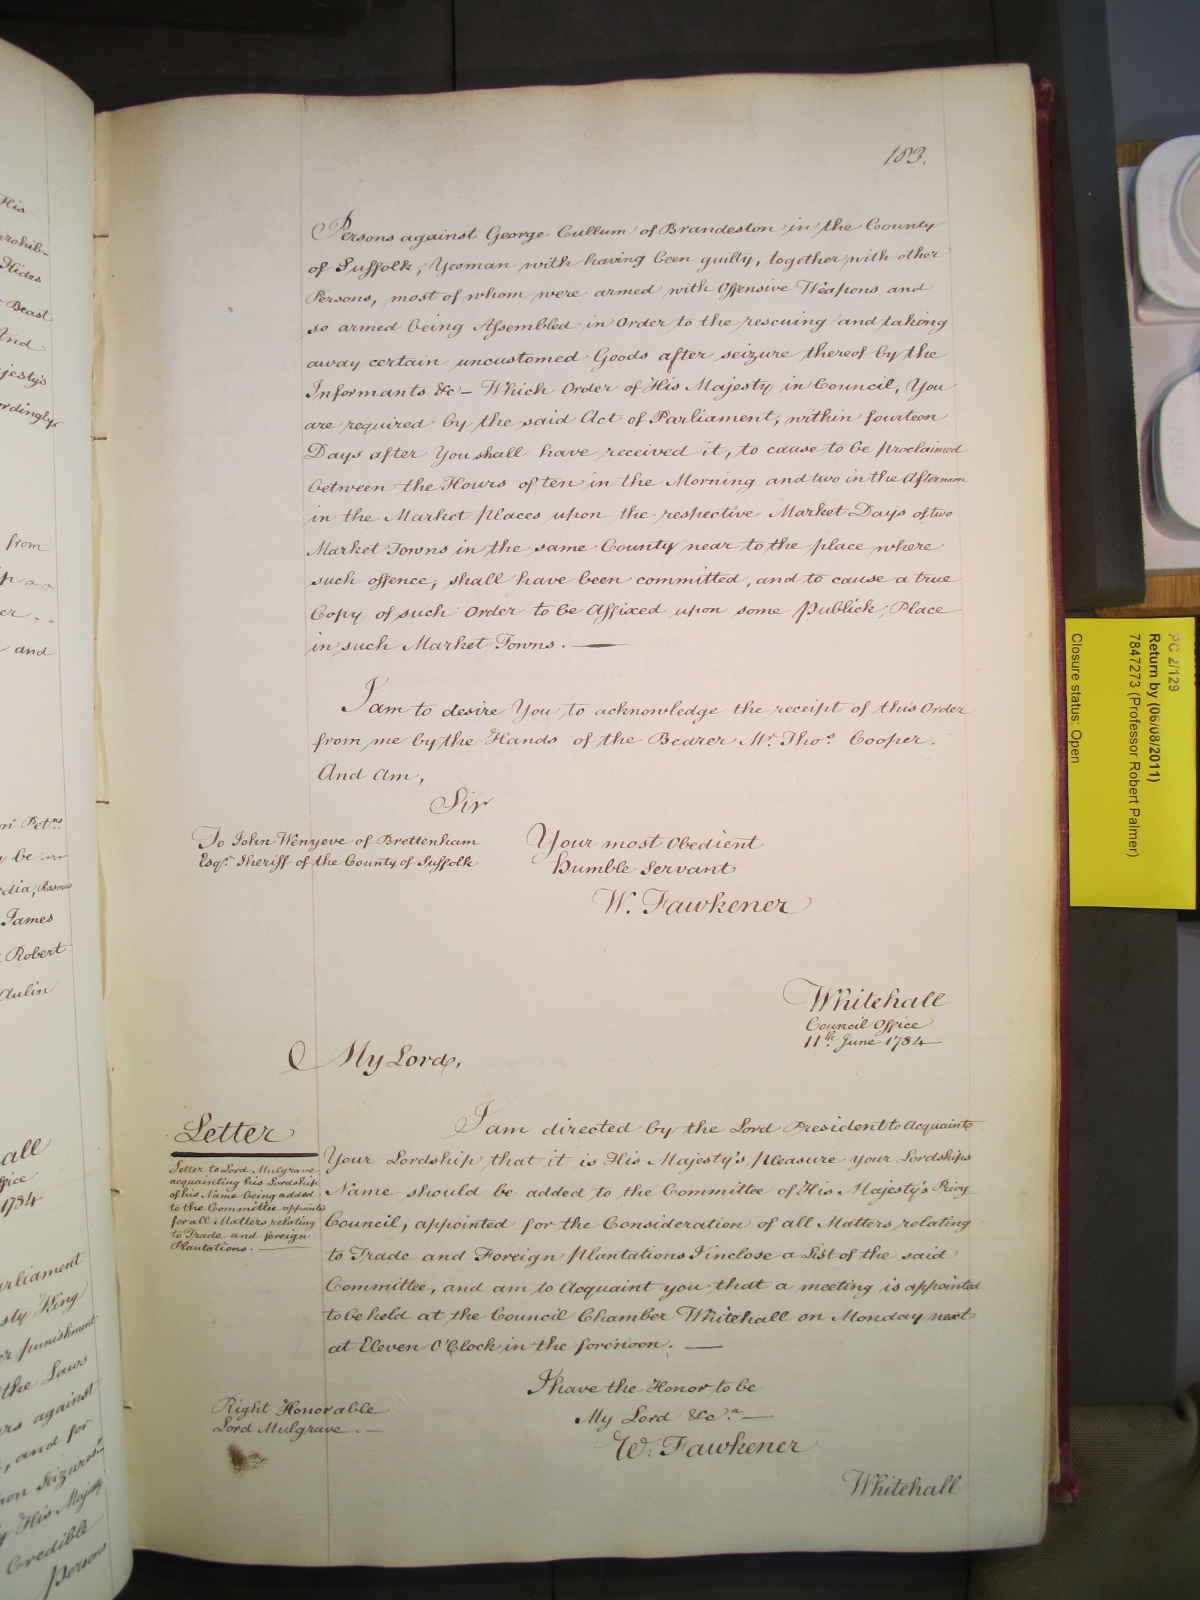 183.
Persons against George Cullum of Brandeston in the County
of Suffolk, Yeoman with having been guilty, together with other
Persons, most of whom were armed with Offensive Weapons and
so armed being Assembled in Order to the rescuing and taking
away certain uncustomed Goods after seizure thereof by the
Informants &c – Which Order of His Majesty in Council, You
are required by the said Act of Parliament, within fourteen
Days after You shall have received it, to cause to be proclaimed
between the Hours of ten in the Morning and two in the Afternoon
in the Market places upon the respective Market Days of two
Market Towns in the same County near to the place where
such offence, shall have been committed, and to cause a true
Copy of such Order to be Affixed upon some Publick, Place
in such Market Towns. —
I am to desire You to acknowledge the receipt of this Order
from me by the Hands of the Bearer Mr. Thos. Cooper.
And Am,
Sir
To John Wenyeve of Brettenham
Esqr. Sheriff of the County of Suffolk
Your most Obedient
Humble Servant
W. Fawkener
Whitehall
Council Office
11th June 1784
My Lord,
Letter
Letter to Lord Mulgrave
acquainting his Lordship
of his Name being added
to the Committee appointd
for all Matters relating
to Trade and foreign
Plantations. —
I am directed by the Lord President to Acquaint
Your Lordship that it is His Majesty's pleasure your Lordships
Name should be added to the Committee of His Majesty's Privy
Council, appointed for the Consideration of all Matters relating
to Trade and Foreign plantations I inclose a List of the said
Committee, and am to Acquaint you that a meeting is appointed
to be held at the Council Chamber Whitehall on Monday next
at Eleven O'Clock in the forenoon. —
I have the Honor to be
My Lord &c.a —
W. Fawkener
Right Honorable
Lord Mulgrave. —
Whitehall
His
prohib-
Hides
Beast
And
jesty's
rdingly
from
er
and
Petns.
be
dia, Rasmus
James
Robert
Aulin
all
fice
1784
arliament
sty King
er punishment
the Laws
ers against
, and for
pon Seizures
y His Majesty
Credible
Persons
PC 2/129
Return by (06/08/2011)
7847273 (Professor Robert Palmer)
Closure status: Open